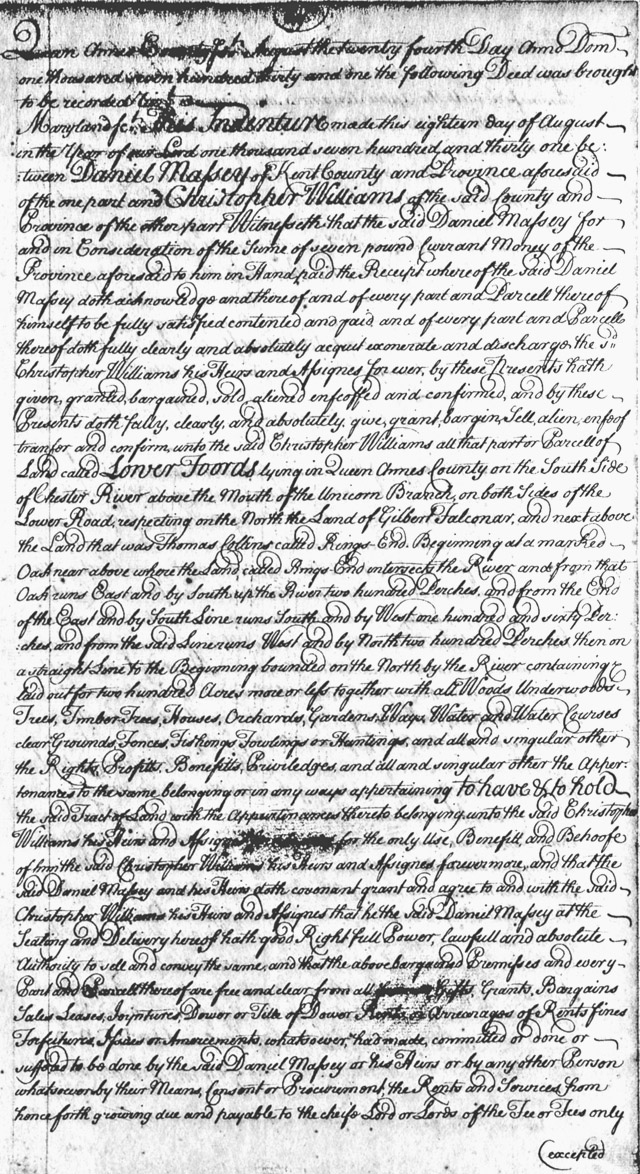 Queen Annes County sct. August the twenty fourth Day Anno Dom
one thousand seven hundred thirty and one the following Deed was brought
to be recorded
Maryland sct. This Indenture made this eighteen day of August
in the Year of our Lord one thousand seven hundred and thirty one be:
:tween Daniel Massey of Kent County and Province aforesaid
of the one part and Christopher Williams of the said County and
Province of the other part Witnesseth that the said Daniel Massey for
and in Consideration of the Sume of seven pound Currant Money of the
Province aforesaid to him in Hand paid the Receipt whereof the said Daniel
Massey doth acknowledge and thereof and of every part and Parcell thereof
himself to be fully satisfied contented and paid and of every part and Parcell
thereof doth fully clearly and absolutely acquit exonerate and discharge the sd.
Christopher Williams his Heirs and Assignes for ever, by these Presents hath
given, granted, bargained, sold, aliened enfeoffed and confirmed, and by these
Presents doth fully, clearly, and absolutely, give, grant, bargin, Sell, alien, enfeof
transfer and confirm, unto the said Christopher Williams all that part or Parcell of
Land called Lower Foords lying in Queen Annes County on the South Side
of Chester River above the Mouth of the Unicorn Branch, on both Sides of the
Lower Road, respecting on the North the Land of Gilbert Falconar, and next above
the Land that was Thomas Collins called Kings-End. Beginning at a marked
Oak near above where the Land called Kings End intersects the River and from that
Oak runs East and by South up the River two hundred Perches, and from the End
of the East and by South Line runs South and by West one hundred and sixty Per:
:ches, and from the said Line runs West and by North two hundred Perches then on
a straight Line to the Beginning bounded on the North by the River containing &
laid out for two hundred Acres more or less together with all Woods Underwoods
Trees, Timber Trees, Houses, Orchards, Gardens, Ways, Water and Water Courses
clear Grounds, Fences, Fishings Fowlings or Huntings, and all and singular other
the Rights, Profits, Benefitts, Priviledges, and all and singular other the Apper:
tenances to the same belonging or in any ways appertaining to have & to hold
the said Tract of Land with the Appurtinances thereto belonging, unto the said Christopher
Williams his Heirs and Assigns for the only Use, Benefitt, and Behoofe
of him the said Christopher Williams his Heirs and Assignes forevermore, and that the
said Daniel Massey and his Heirs doth covenant grant and agree to and with the Said
Christopher Williams his Heirs and Assignes that he the said Daniel Massey at the
Sealing and Delivery hereof hath good Right full Power, lawfull and absolute
Authority to sell and convey the same, and that the above bargained Premisses and every
Part and Parcell thereof are free and clear from all Gifts, Grants, Bargains
Sales Leases, Joyntures, Dower or Title of Dower Rents or Arrearages of Rents fines
Forfeitures, or Amercements, whatsoever, had made, committed or done or
suffered to be done by the said Daniel Massey or his Heirs or by any other Person
whatsoever by their Means, Consent or Procurement, the Rents and Services from
hence forth growing due and payable to the cheife Lord or Lords of the Fee or Fees only
(excepted